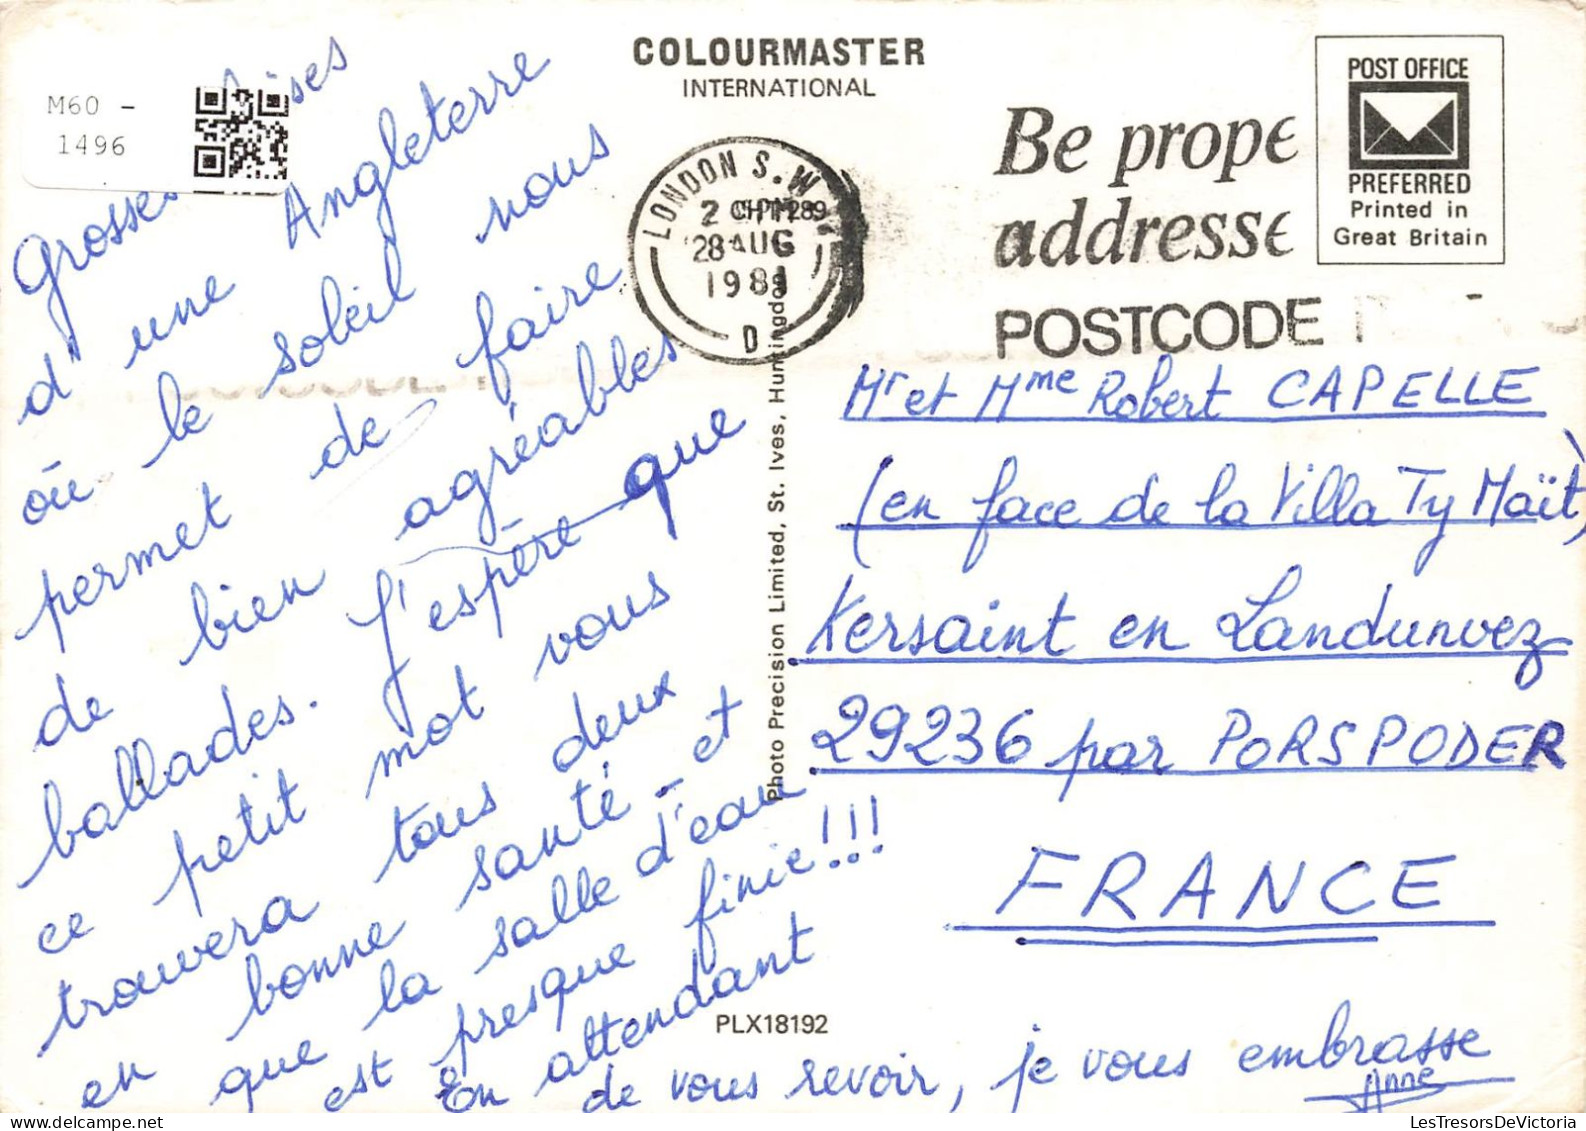 M60 -
1496
COLOURMASTER
INTERNATIONAL
Grosses
d'une Angleterre
où le soleil nous
permet de faire
de bien agréables
ballades. J'espère que
ce petit mot vous
trouvera tous deux
en bonne santé - et
que la salle d'eau
est presque finie!!!
En attendant
de vous revoir, je vous embrasse
Anne
LONDON S.W
28 AUG
1981
D
Be prope
addresse
POSTCODE
POST OFFICE
PREFERRED
Printed in
Great Britain
Mr et Mme Robert CAPELLE
(en face de la Villa Ty Maït)
Kersaint en Landunvez
29236 par PORSPODER
FRANCE
Photo Precision Limited, St. Ives, Huntingdon
PLX18192
LesTresorsDeVictoria